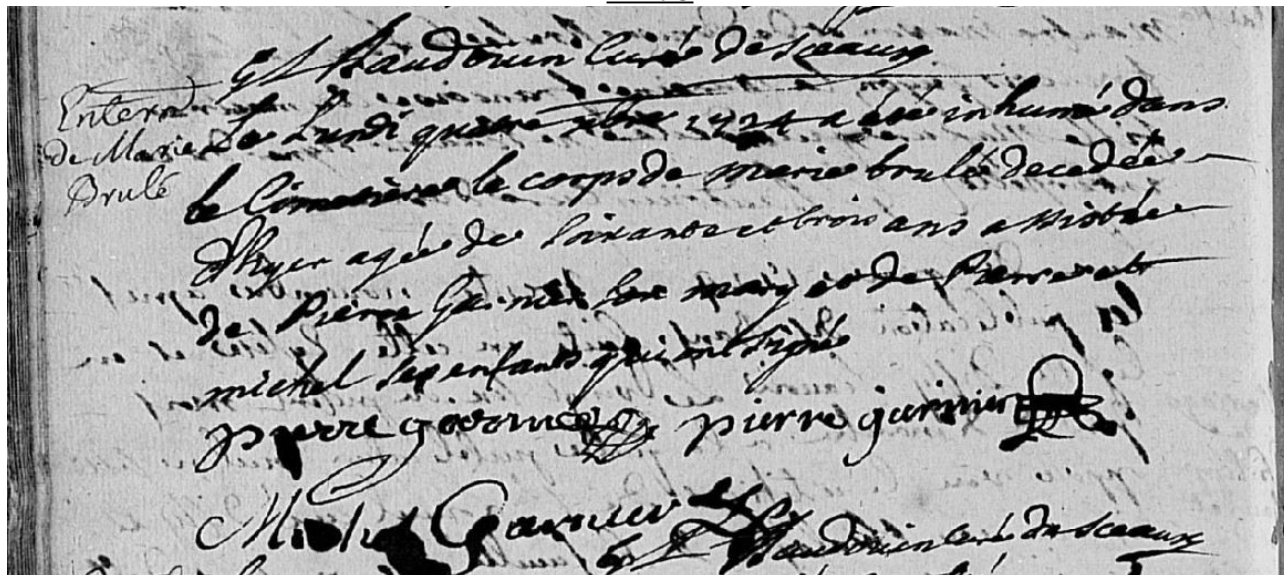 Baudouin Curé de Sceaux
Enterm
de Marie
Brulé
Le Lundi quatre xbre 1724 a été inhumé dans
le Cimetiere le corps de marie brulé decedée
d'hyer agée de soixante et trois ans assistée
de Pierre Garnier son mary et de Pierre et
michel ses enfants qui ont signé
pierre garnier pierre garnier
Michel Garnier
Baudouin curé de Sceaux